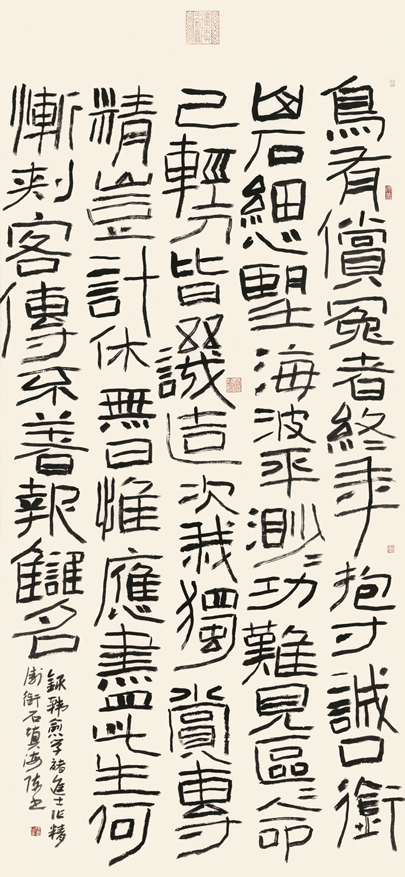 鳥有償冤者終年抱寸誠口銜
山石細心望海波平渺〻功難見區〻命
已輕人皆譏造次我獨賞專
精豈計休無日惟應盡此生何
慚刺客傳不著報讎名
錄韓愈學諸進士作精
衛銜石填海